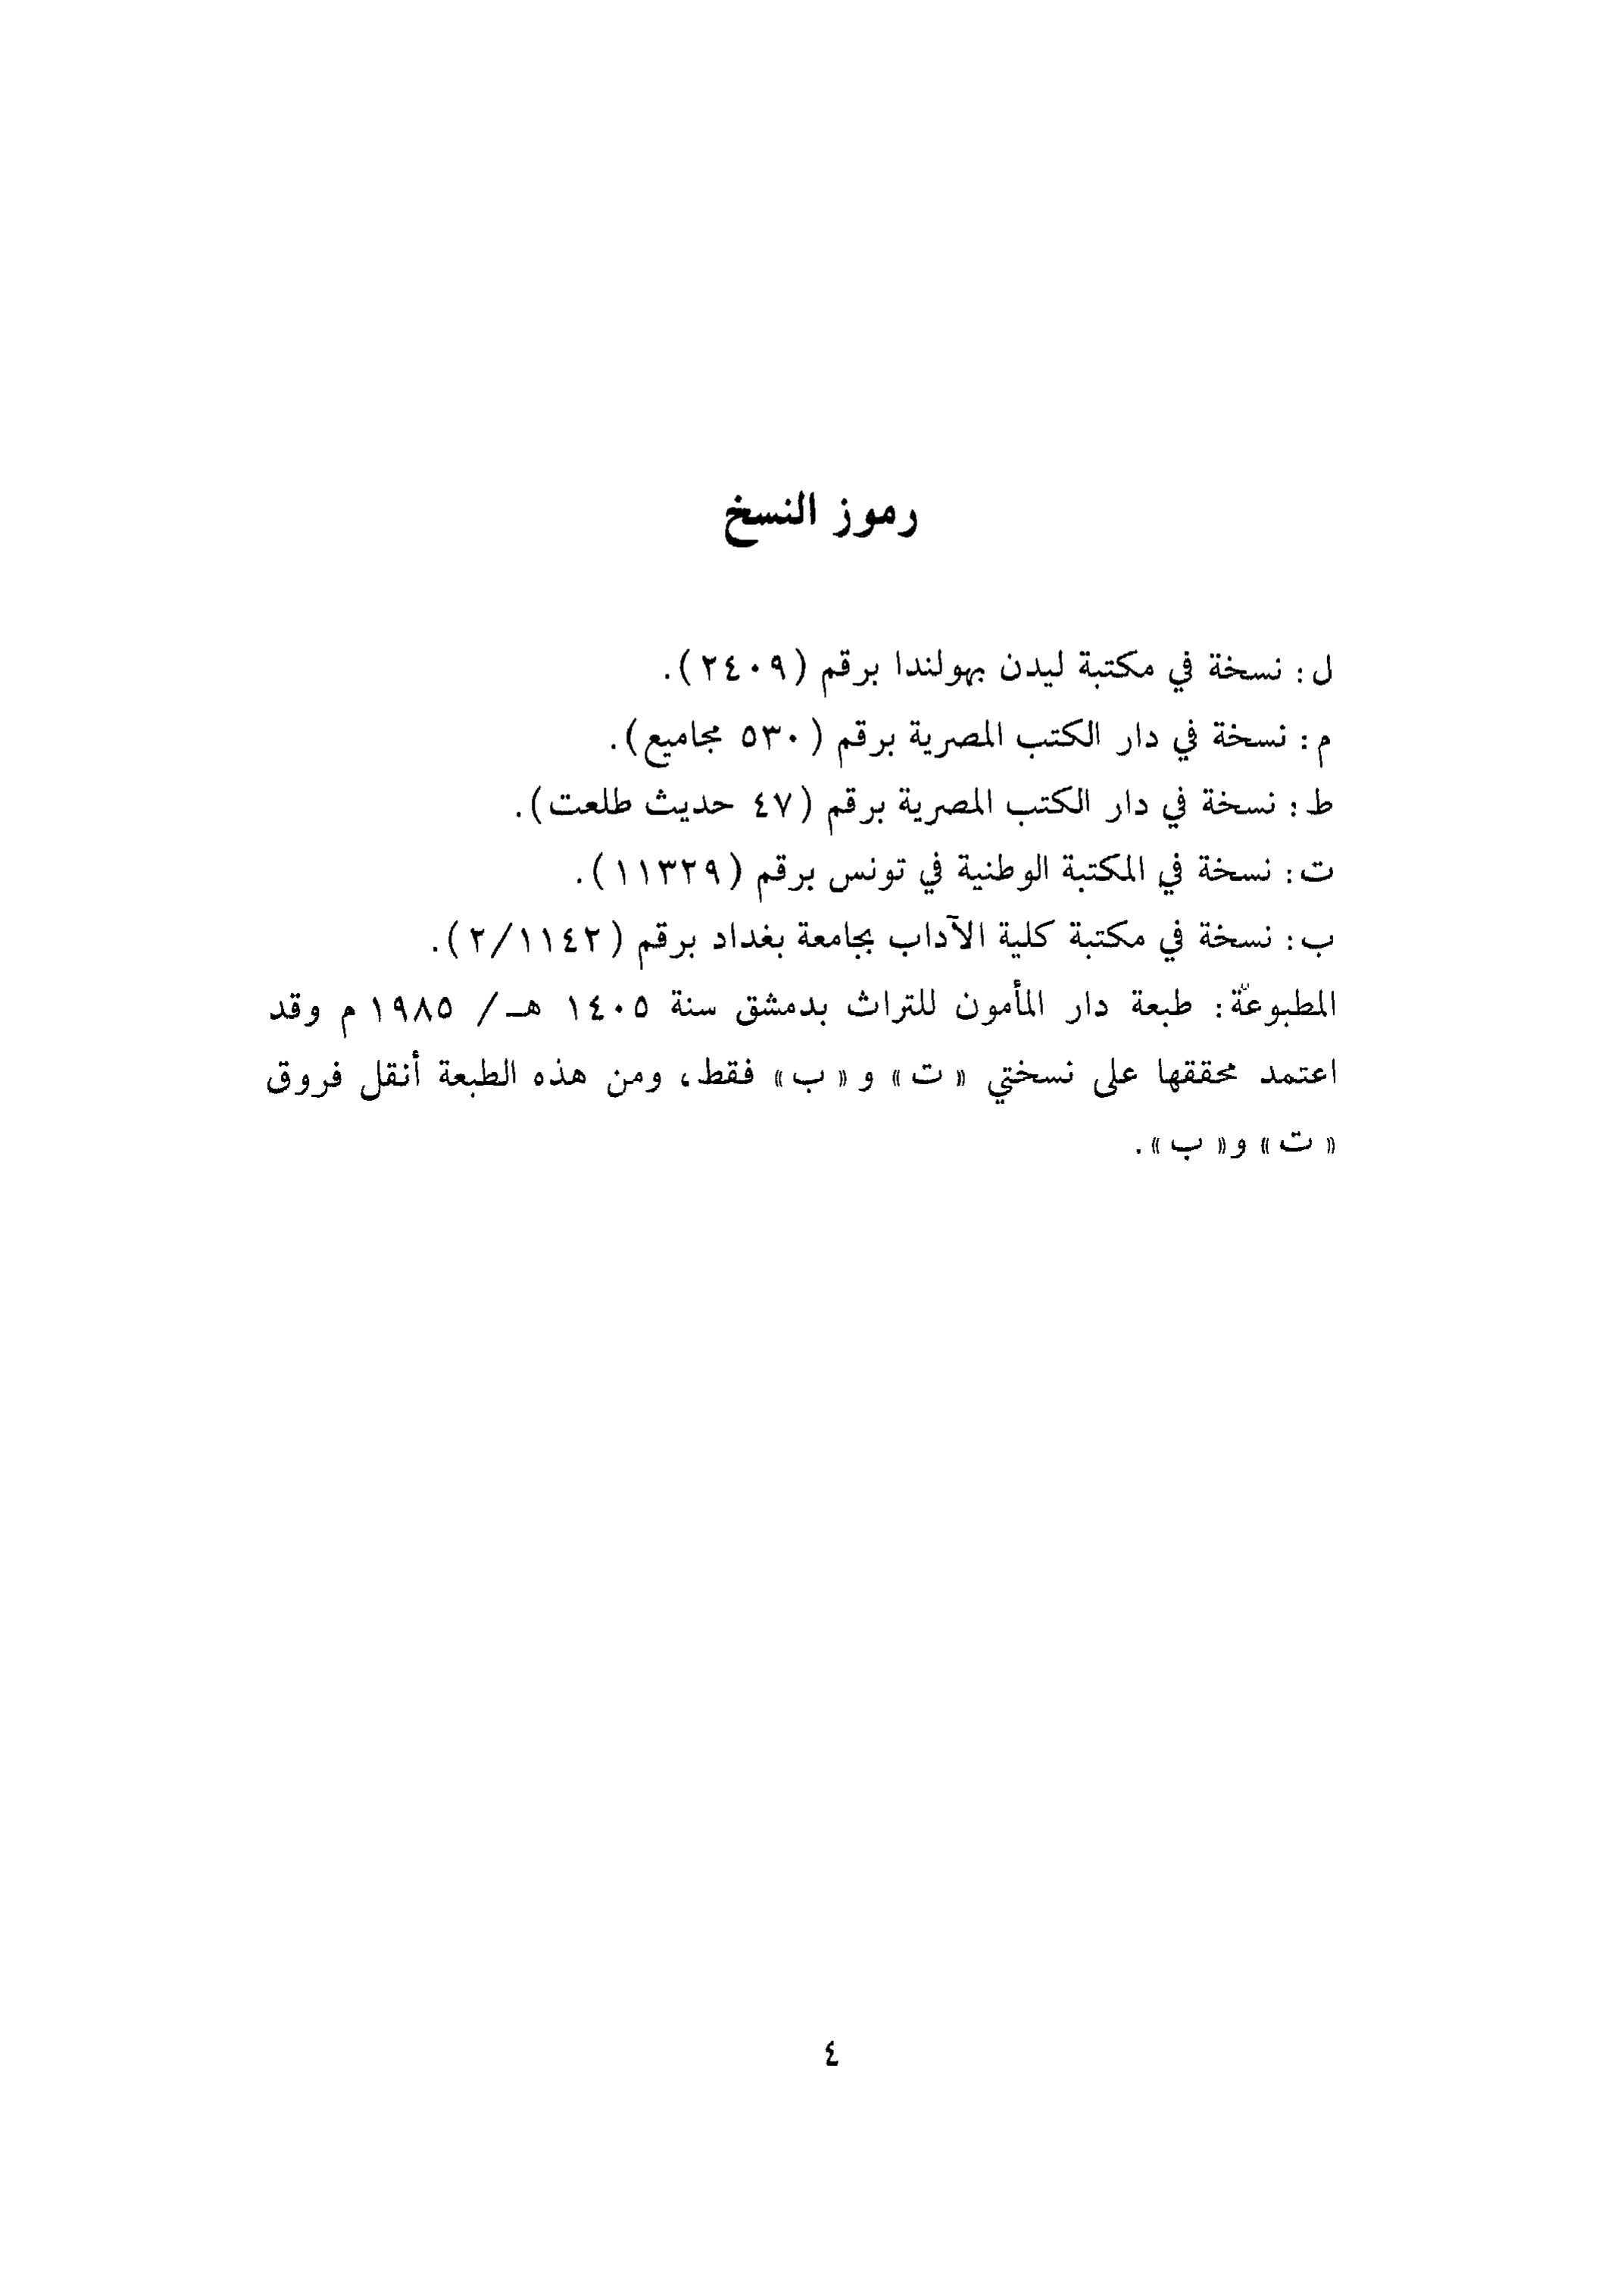 رموز النسخ
ل: نسخة في مكتبة ليدن بهولندا برقم (٢٤٠٩).
م: نسخة في دار الكتب المصرية برقم (٥٣٠ مجاميع).
ط: نسخة في دار الكتب المصرية برقم (٤٧ حديث طلعت).
ت: نسخة في المكتبة الوطنية في تونس برقم (١١٣٢٩).
ب: نسخة في مكتبة كلية الآداب بجامعة بغداد برقم (٢/١١٤٢).
المطبوعة: طبعة دار المأمون للتراث بدمشق سنة ١٤٠٥ هـ/ ١٩٨٥ م وقد
اعتمد محققها على نسختي «ت» و «ب» فقط، ومن هذه الطبعة أنقل فروق
«ت» و«ب».
٤